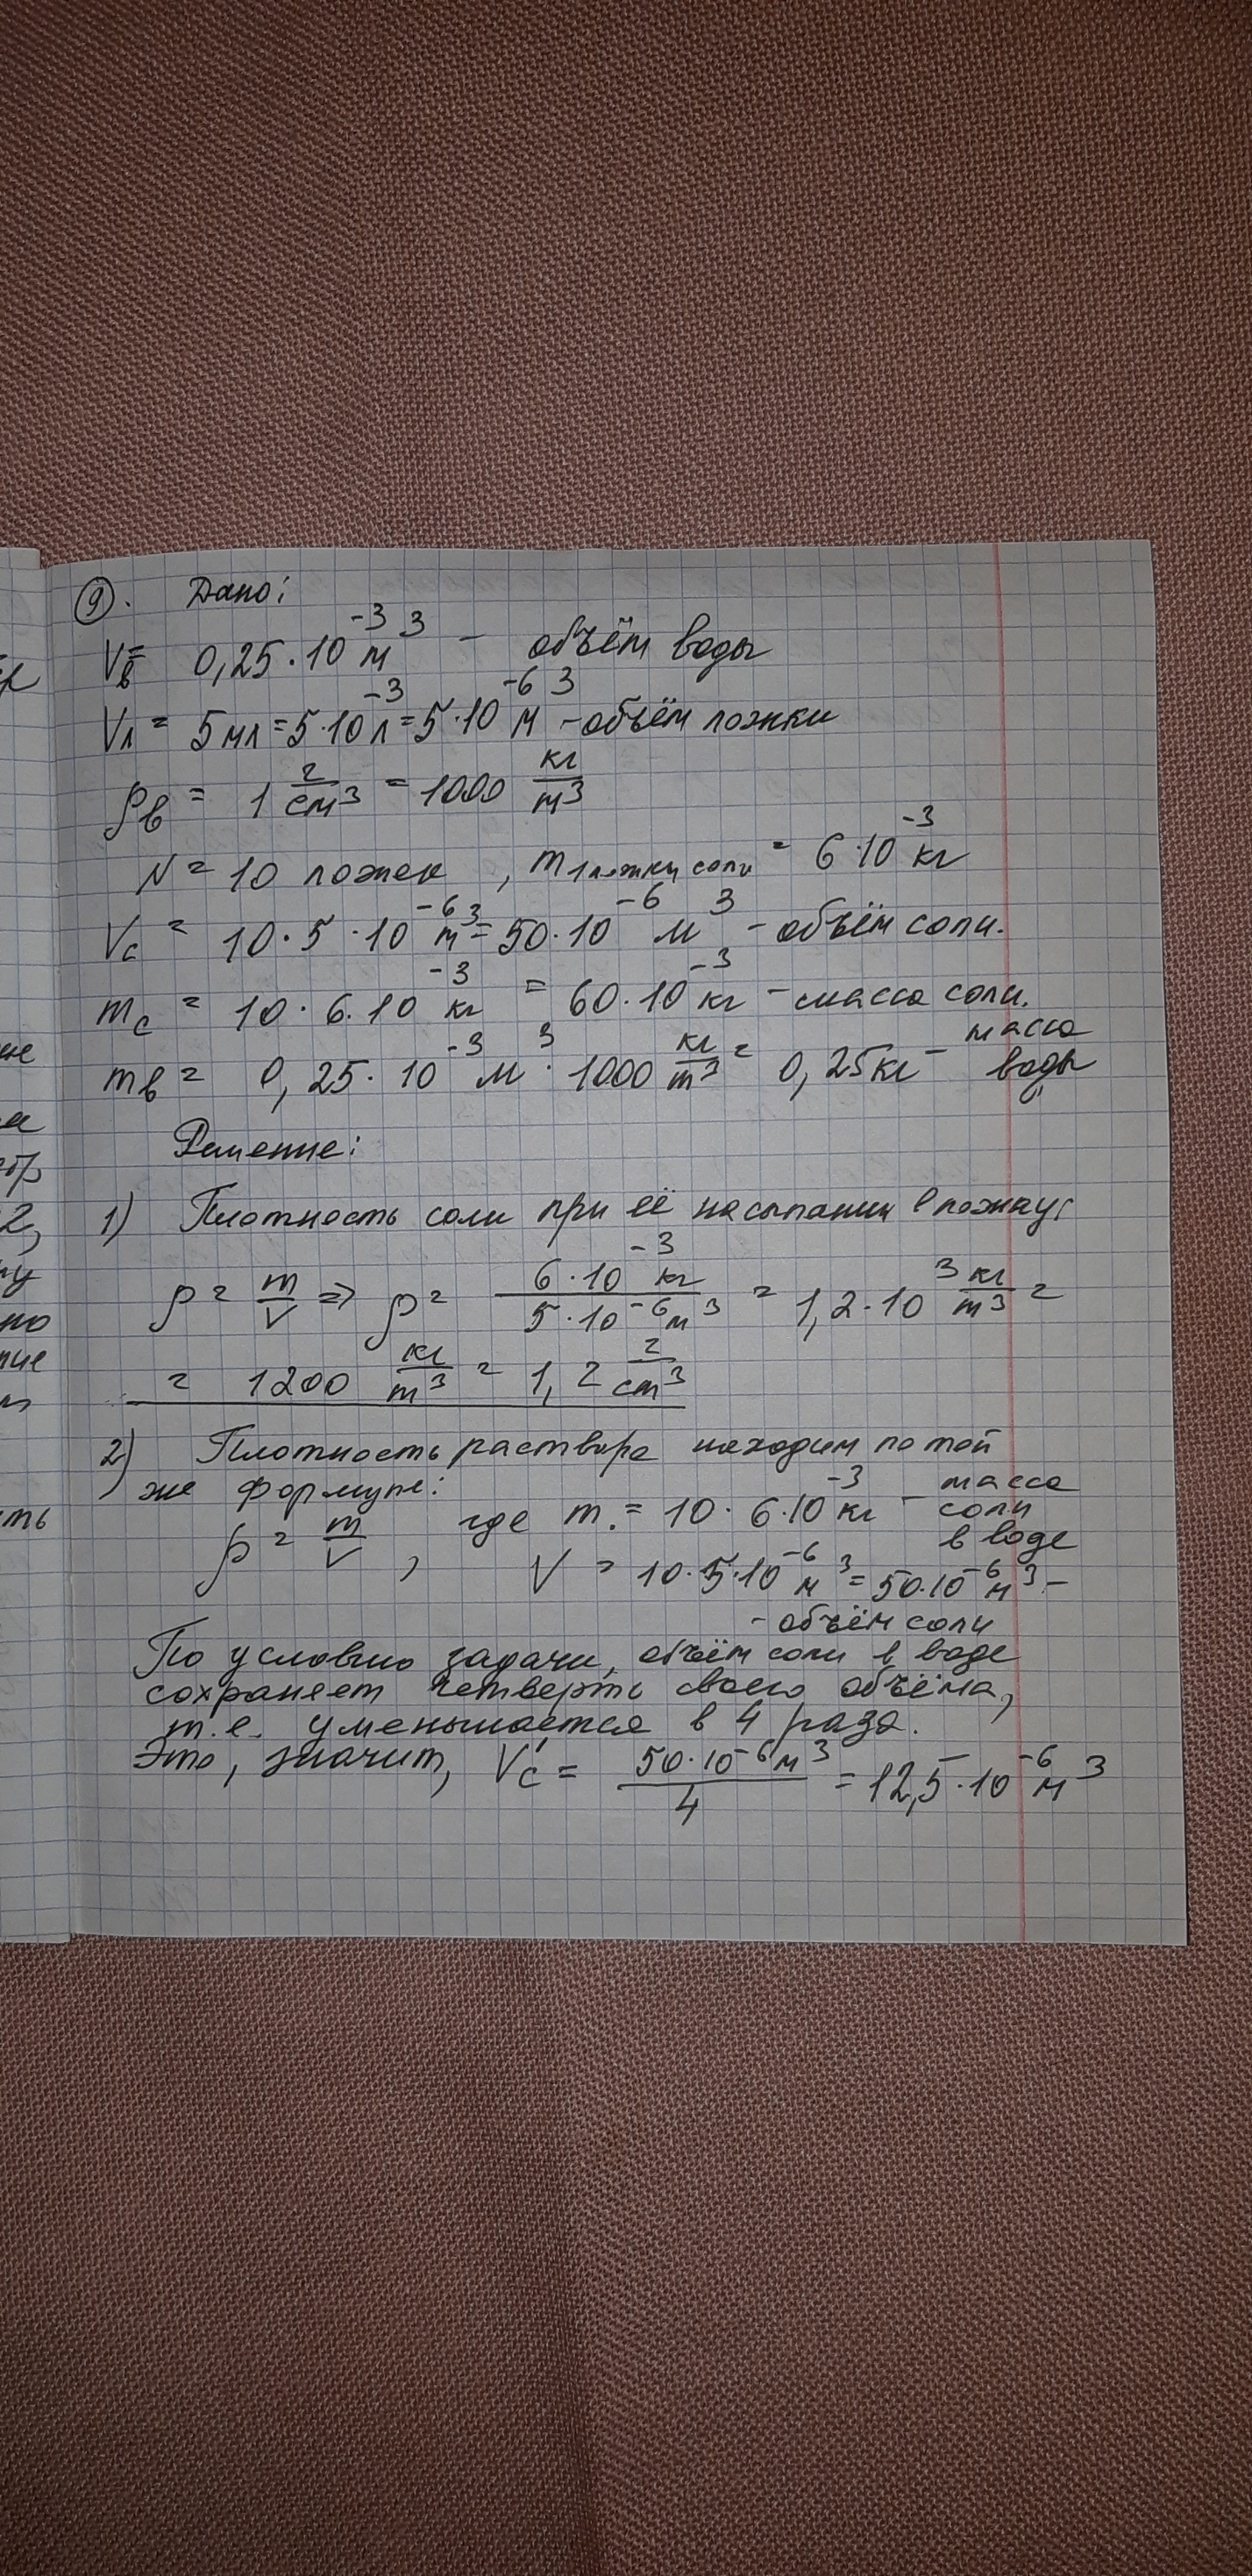 9. Дано:
Vв = 0,25·10⁻³ м³ – объём воды
Vл = 5 мл = 5·10⁻³ л = 5·10⁻⁶ м³ – объём ложки
ρв = 1 г/см³ = 1000 кг/м³
N = 10 ложек, m 1 ложки соли = 6·10⁻³ кг
Vс = 10·5·10⁻⁶ м³ = 50·10⁻⁶ м³ – объём соли.
mс = 10·6·10⁻³ кг = 60·10⁻³ кг – масса соли.
mв = 0,25·10⁻³ м³·1000 кг/м³ = 0,25 кг – масса воды
Решение:
1) Плотность соли при её насыпании в ложку:
ρ = m/V ⇒ ρ = 6·10⁻³ кг / 5·10⁻⁶ м³ = 1,2·10³ кг/м³ =
= 1200 кг/м³ = 1,2 г/см³
2) Плотность раствора находим по той
же формуле:
ρ = m/V, где m = 10·6·10⁻³ кг – масса соли в воде
V = 10·5·10⁻⁶ м³ = 50·10⁻⁶ м³ –
– объём соли
По условию задачи, объём соли в воде
сохраняет четверть своего объёма,
т.е. уменьшается в 4 раза.
Это, значит, Vс' = 50·10⁻⁶ м³ / 4 = 12,5·10⁻⁶ м³